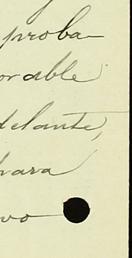 proba-
orable
delante,
para
vo